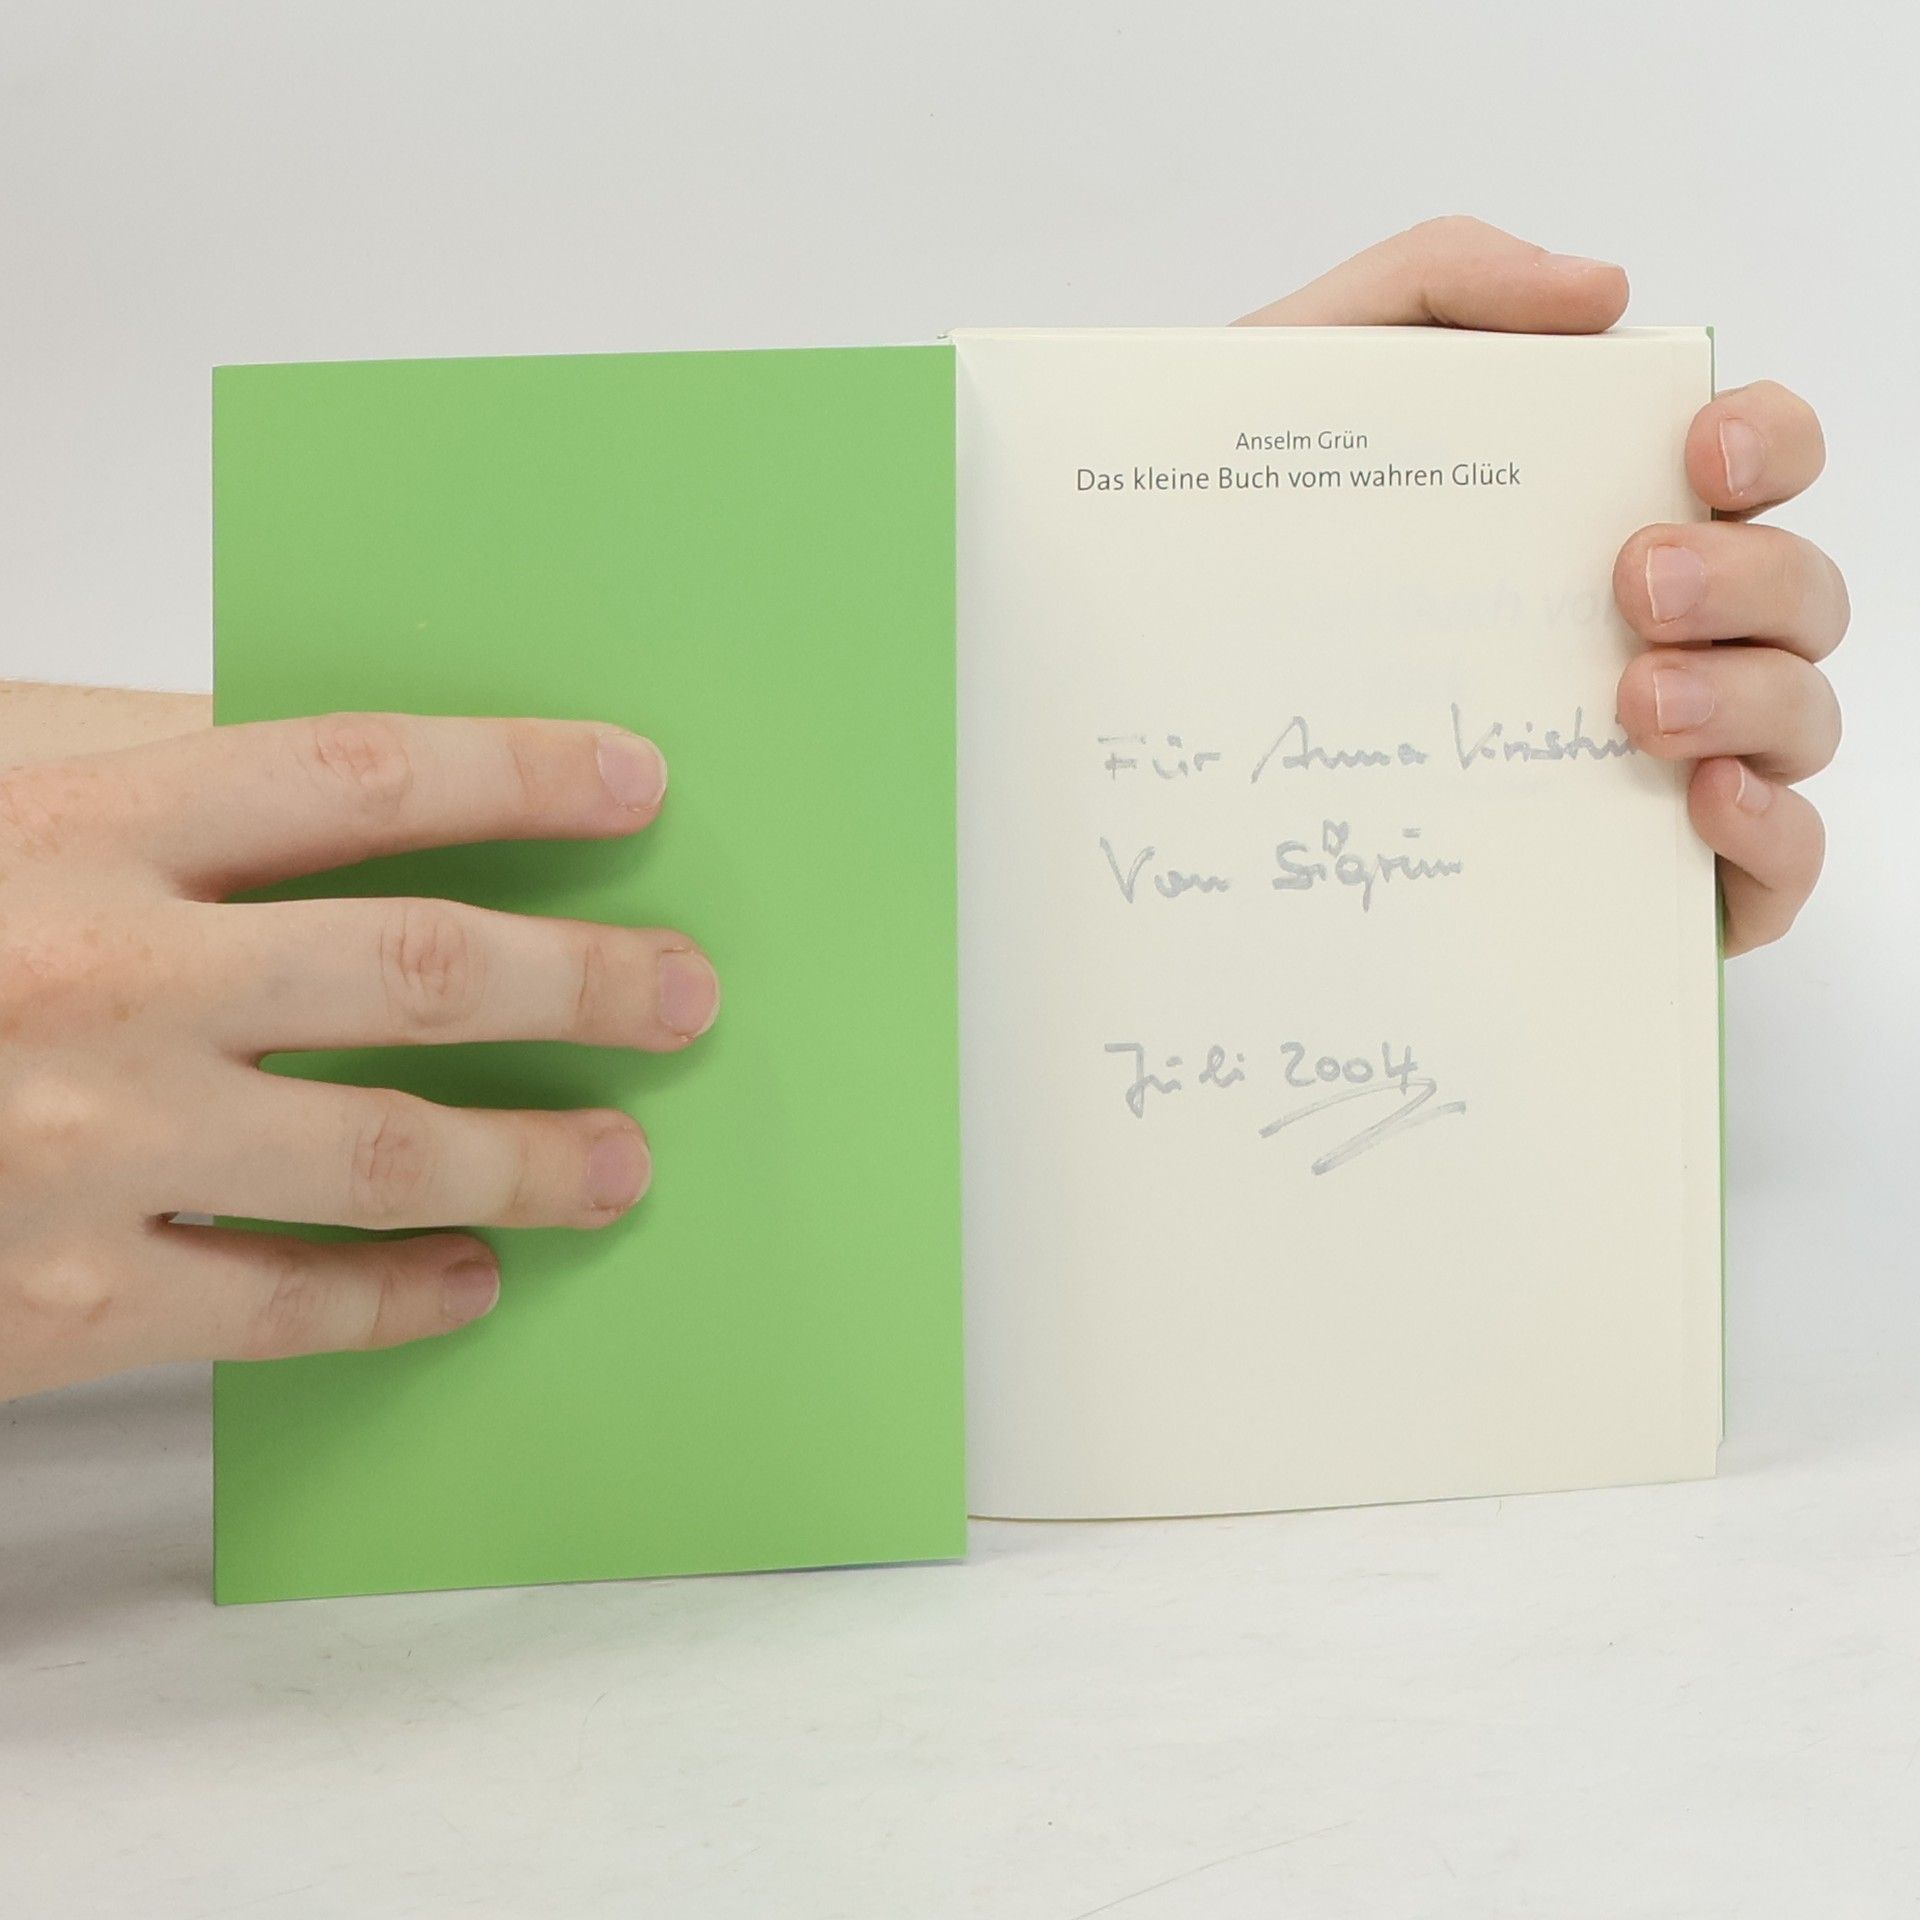 Anselm Grün
Das kleine Buch vom wahren Glück
Für Anna
Von Sigrun
Juli 2004